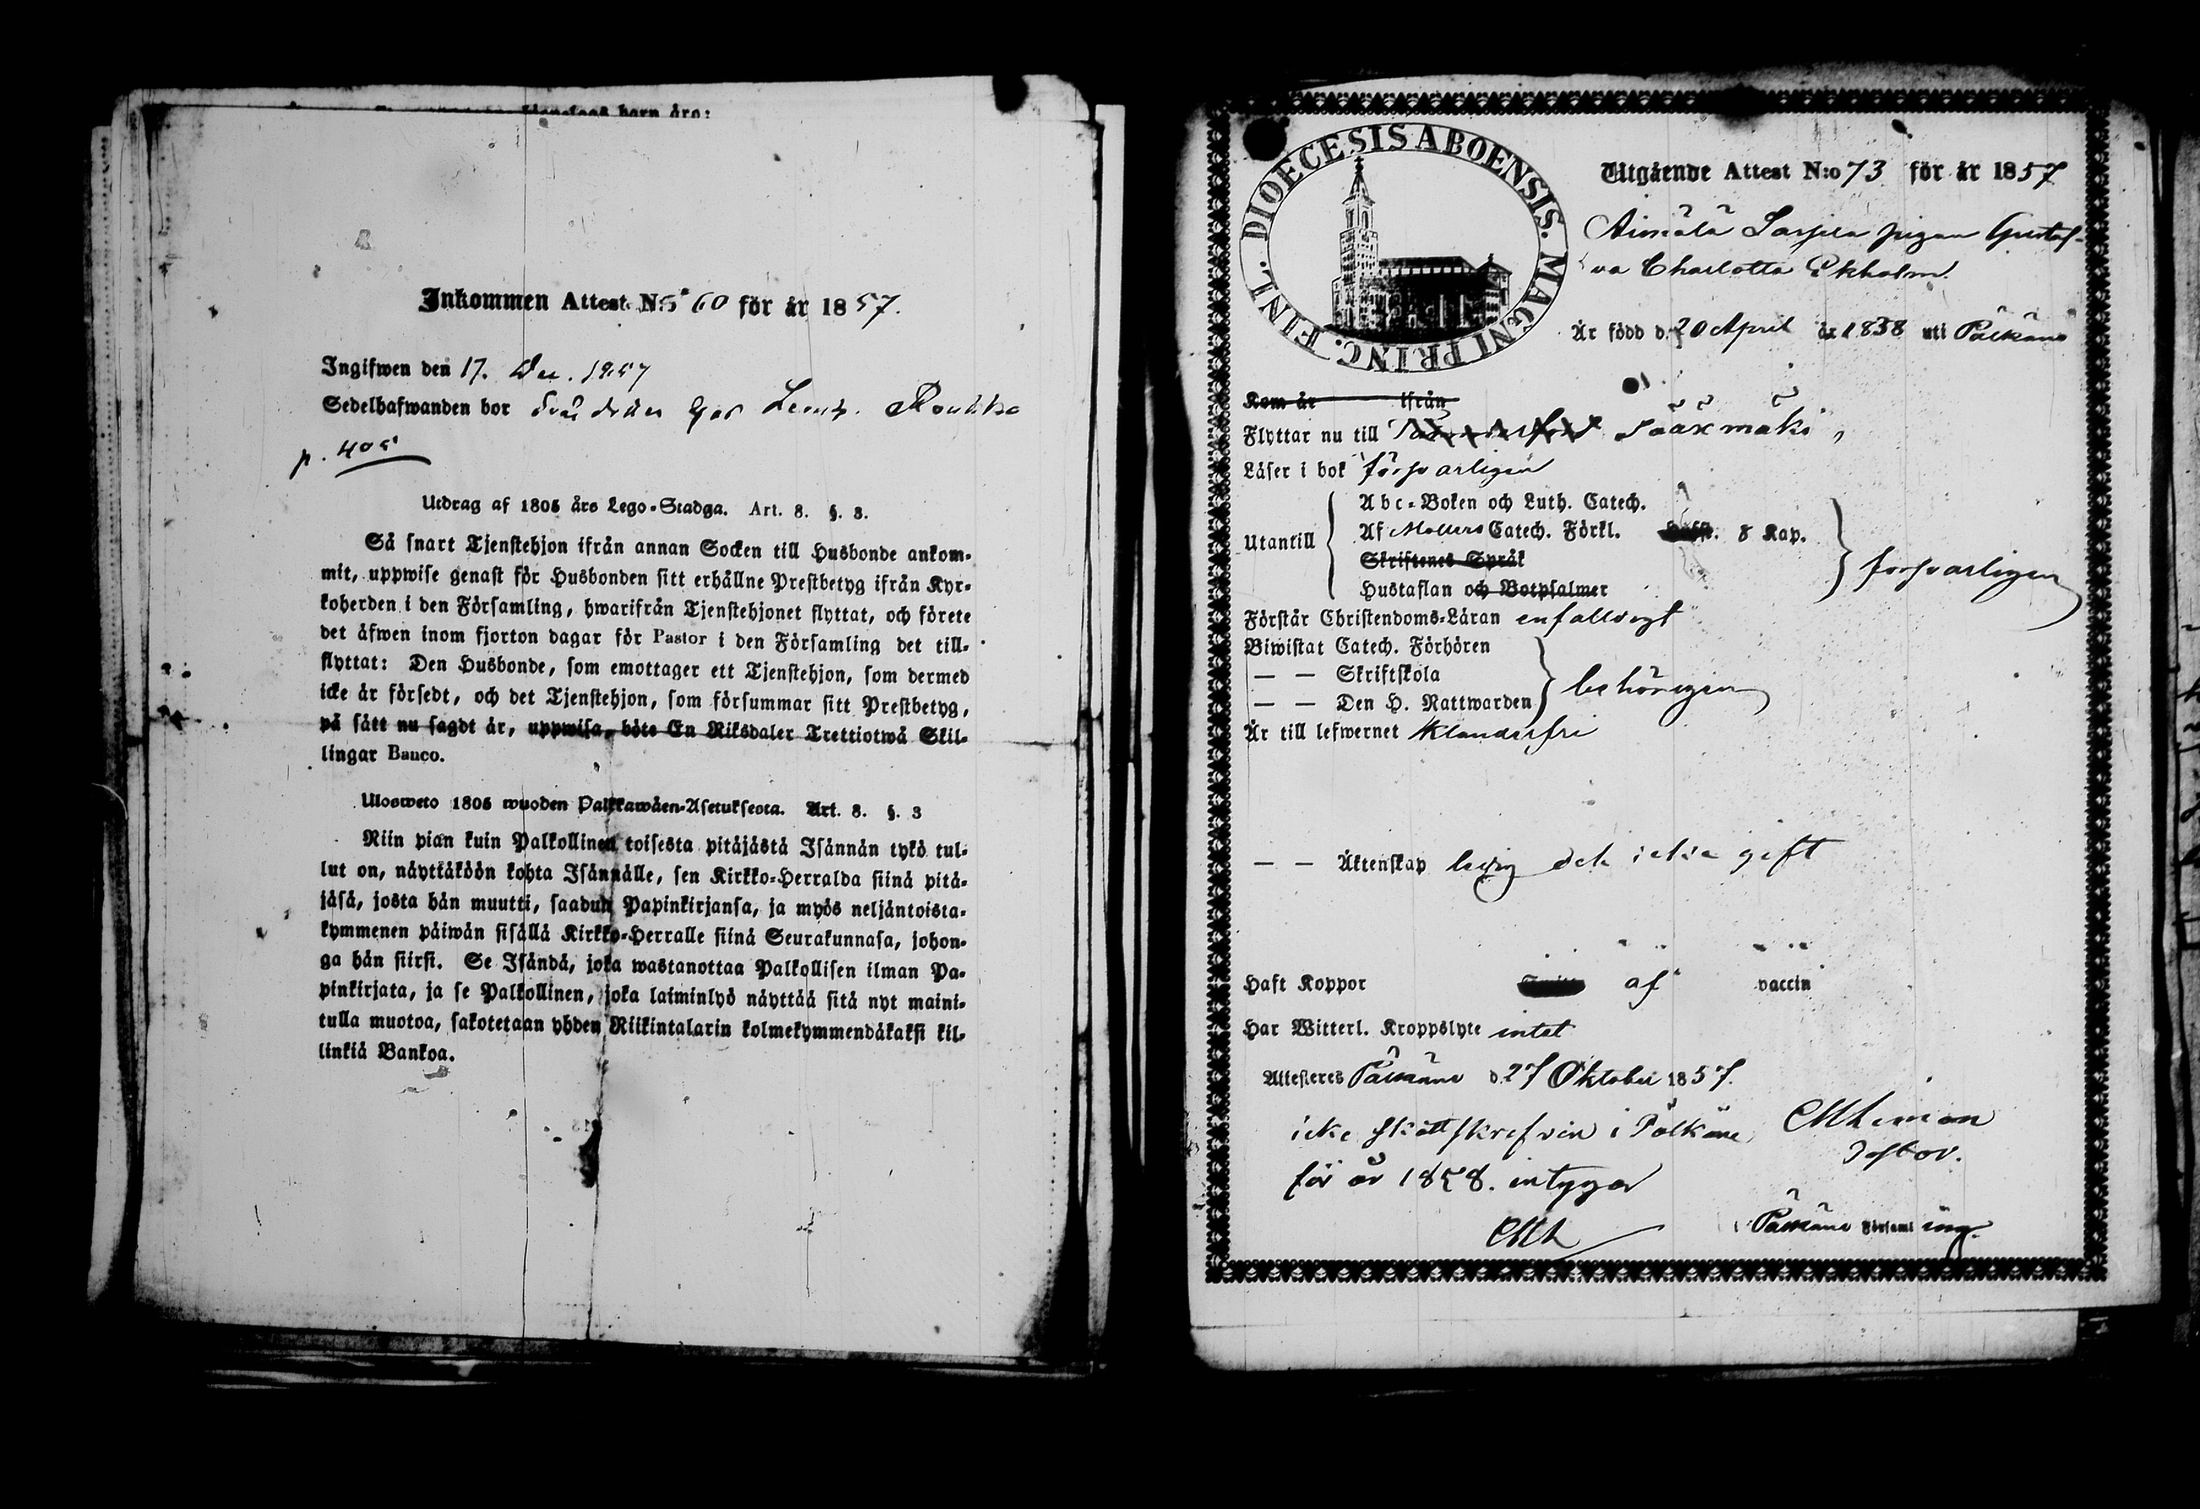 barn äro:
Inkommen Attest N:o 60 för år 1857.
Ingifwen den 17. Dec. 1857
Sedelhafwanden bor
p. 405
Utdrag af 1805 års Lego-Stadga. Art. 8. §. 3.
Så snart Tjenstehjon ifrån annan Socken till Husbonde ankom-
mit, uppwise genast för Husbonden sitt erhållne Prestbetyg ifrån Kyr-
koherden i den Församling, hwarifrån Tjenstehjonet flyttat, och förete
det äfwen inom fjorton dagar för Pastor i den Församling det till-
flyttat: Den Husbonde, som emottager ett Tjenstehjon, som dermed
icke är försedt, och det Tjenstehjon, som försummar sitt Prestbetyg,
på sätt nu sagdt är, uppwisa, böte En Riksdaler Trettiotwå Skil-
lingar Banco.
Ulosweto 1805 wuoden Palkkawäen-Asetuksesta. Art. 8. §. 3
Niin pian kuin Palkollinen toisesta pitäjästä Isännän tykö tul-
lut on, näyttäköön kohta Isännälle, sen Kirkko-Herralda siinä pitä-
jäsä, josta hän muutti, saadun Papinkirjansa, ja myös neljäntoista-
kymmenen päiwän sisällä Kirkko-Herralle siinä Seurakunnasa, johon-
ga hän siirsi. Se Isändä, joka wastanottaa Palkollisen ilman Pa-
pinkirjata, ja se Palkollinen, joka laiminlyö näyttää sitä nyt maini-
tulla muotoa, sakotetaan yhden Riikintalarin kolmekymmendäkaksi kil-
linkiä Bankoa.
DIOECESIS ABOENSIS. MAGNI PRINC. FINL.
Utgående Attest N:o 73 för år 1857
Aimälä Sarpila pigan Gustaf-
va Charlotta Ekholm.
Är född d. 20 April år 1838 uti Pälkäne
Kom år ifrån
Flyttar nu till Sääxmäki,
Läser i bok försvarligen
Utantill
Abc-Boken och Luth. Catech.
Af Möllers Catech. Förkl. 8 Kap.
Skriftenes Språk
Hustaflan och Botpsalmer
försvarligen
Förstår Christendoms-Läran enfalldigt
Biwistat Catech. Förhören
— — Skriftskola
— — Den H. Nattwarden
behörigen
Är till lefwernet klanderfri
— — Äktenskap ledig och icke gift
Haft Koppor af vaccin
Har Witterl. Kroppslyte intet
Attesteres Pälkäne d. 27 Oktober 1857.
icke skattskrefven i Pälkäne
för år 1858. intygar
Pälkäne Församling.